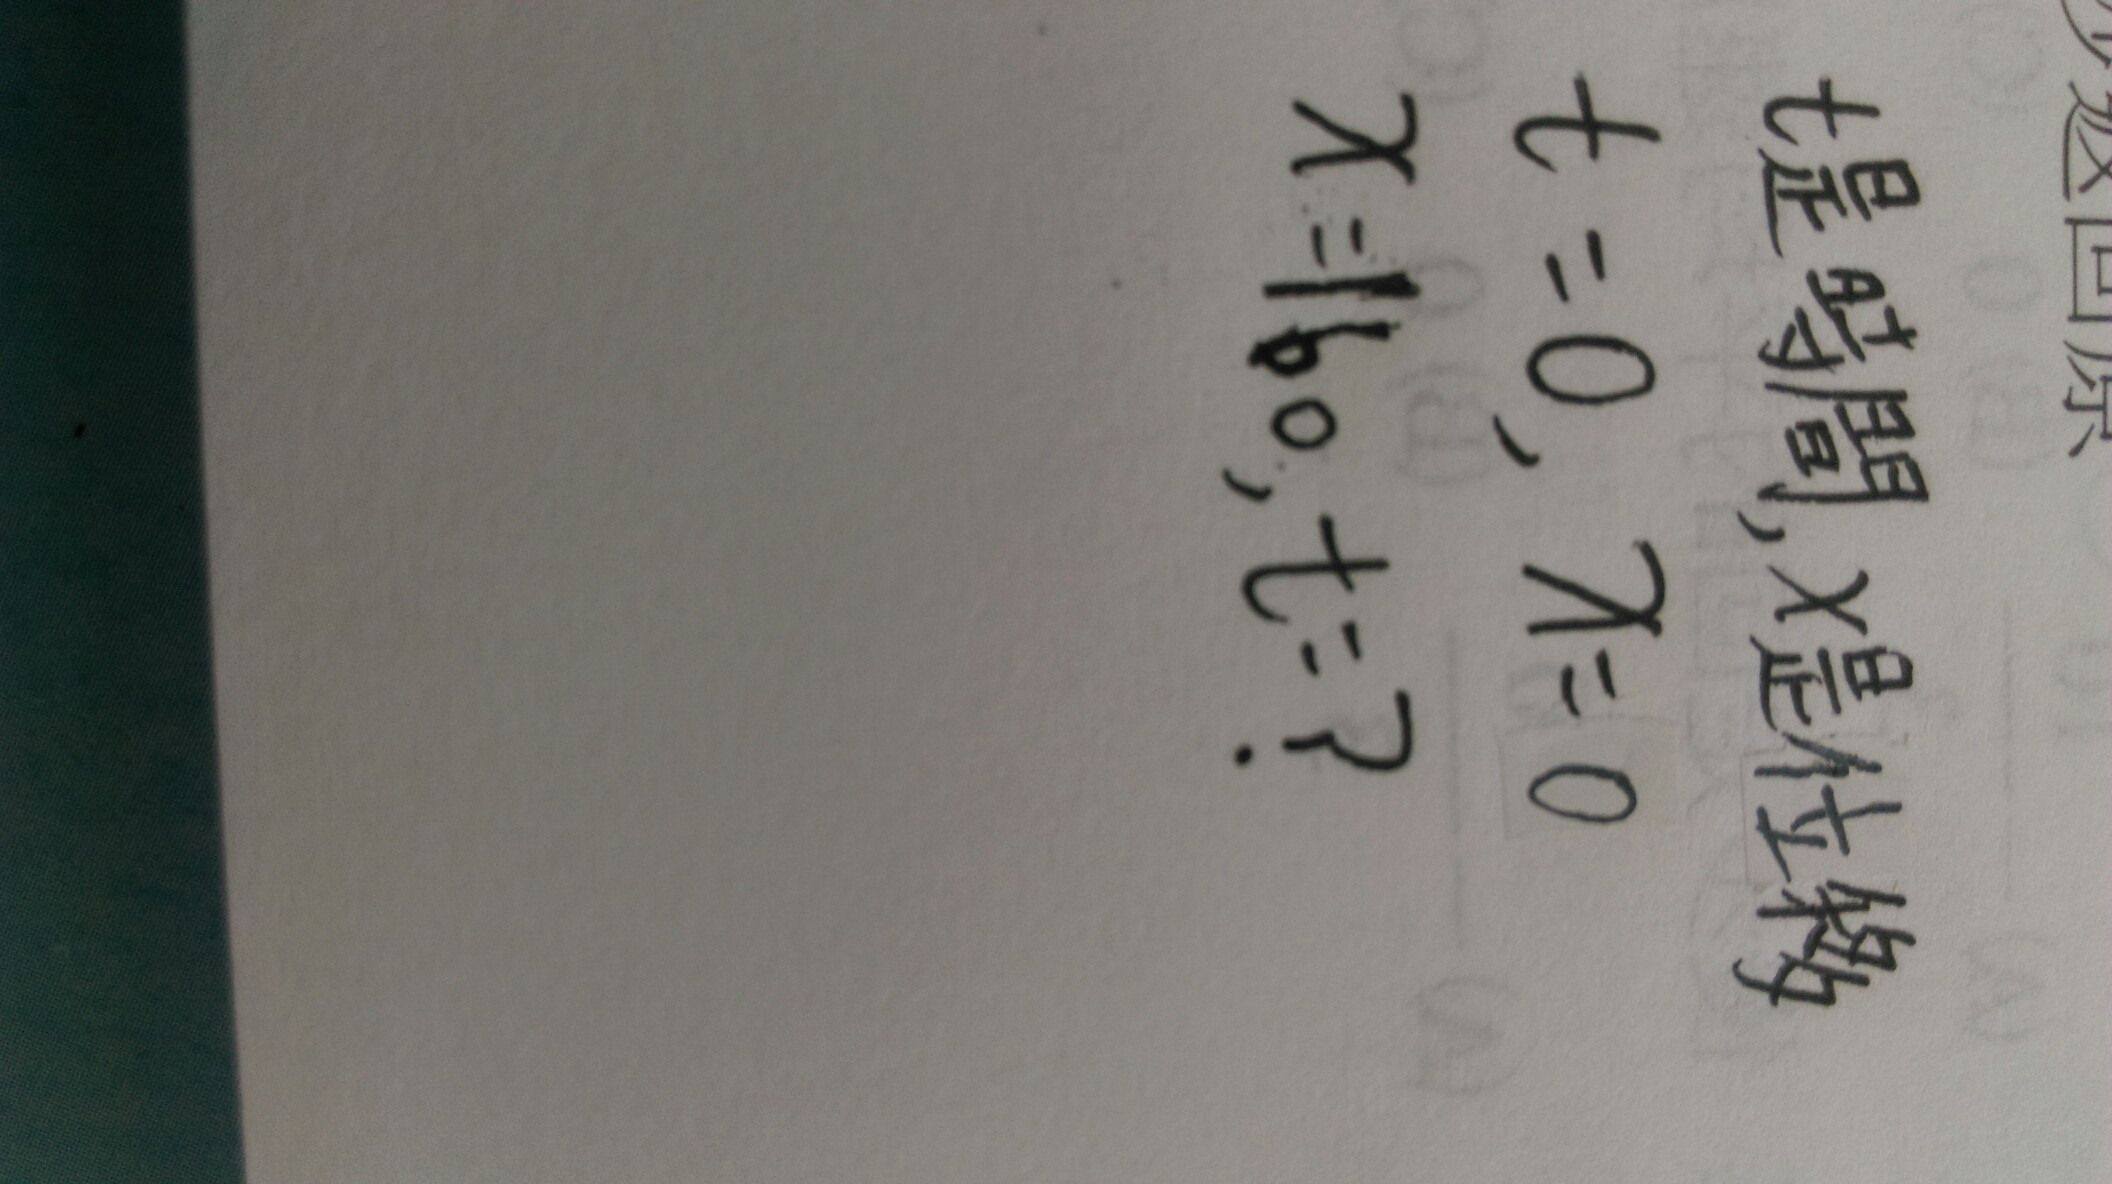 返回原
t是時間,x是位移
t=0, x=0
x=160, t=?